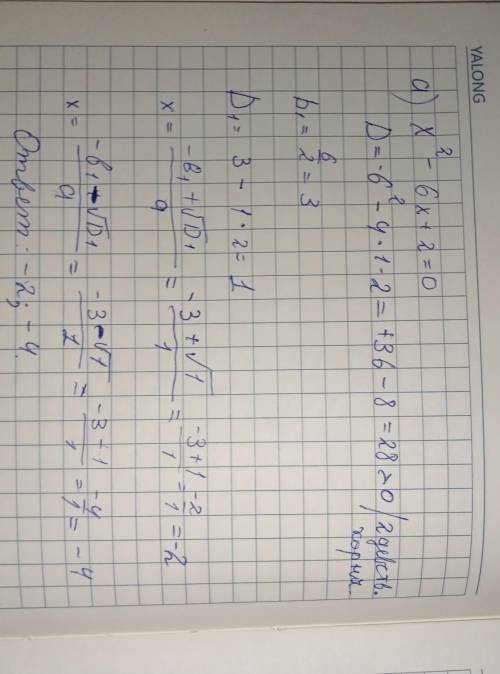 YALONG
а) x² - 6x + 2 = 0
D = -6² - 4·1·2 = +36 - 8 = 28 > 0 / 2 действ. корня
b₁ = 6/2 = 3
D₁ = 3 - 1·2 = 1
x = (-b₁ + √D₁)/a = (-3 + √1)/1 = (-3 + 1)/1 = -2/1 = -2
x = (-b₁ - √D₁)/a = (-3 - √1)/1 = (-3 + 1)/1 = -4/1 = -4
Ответ: -2; -4